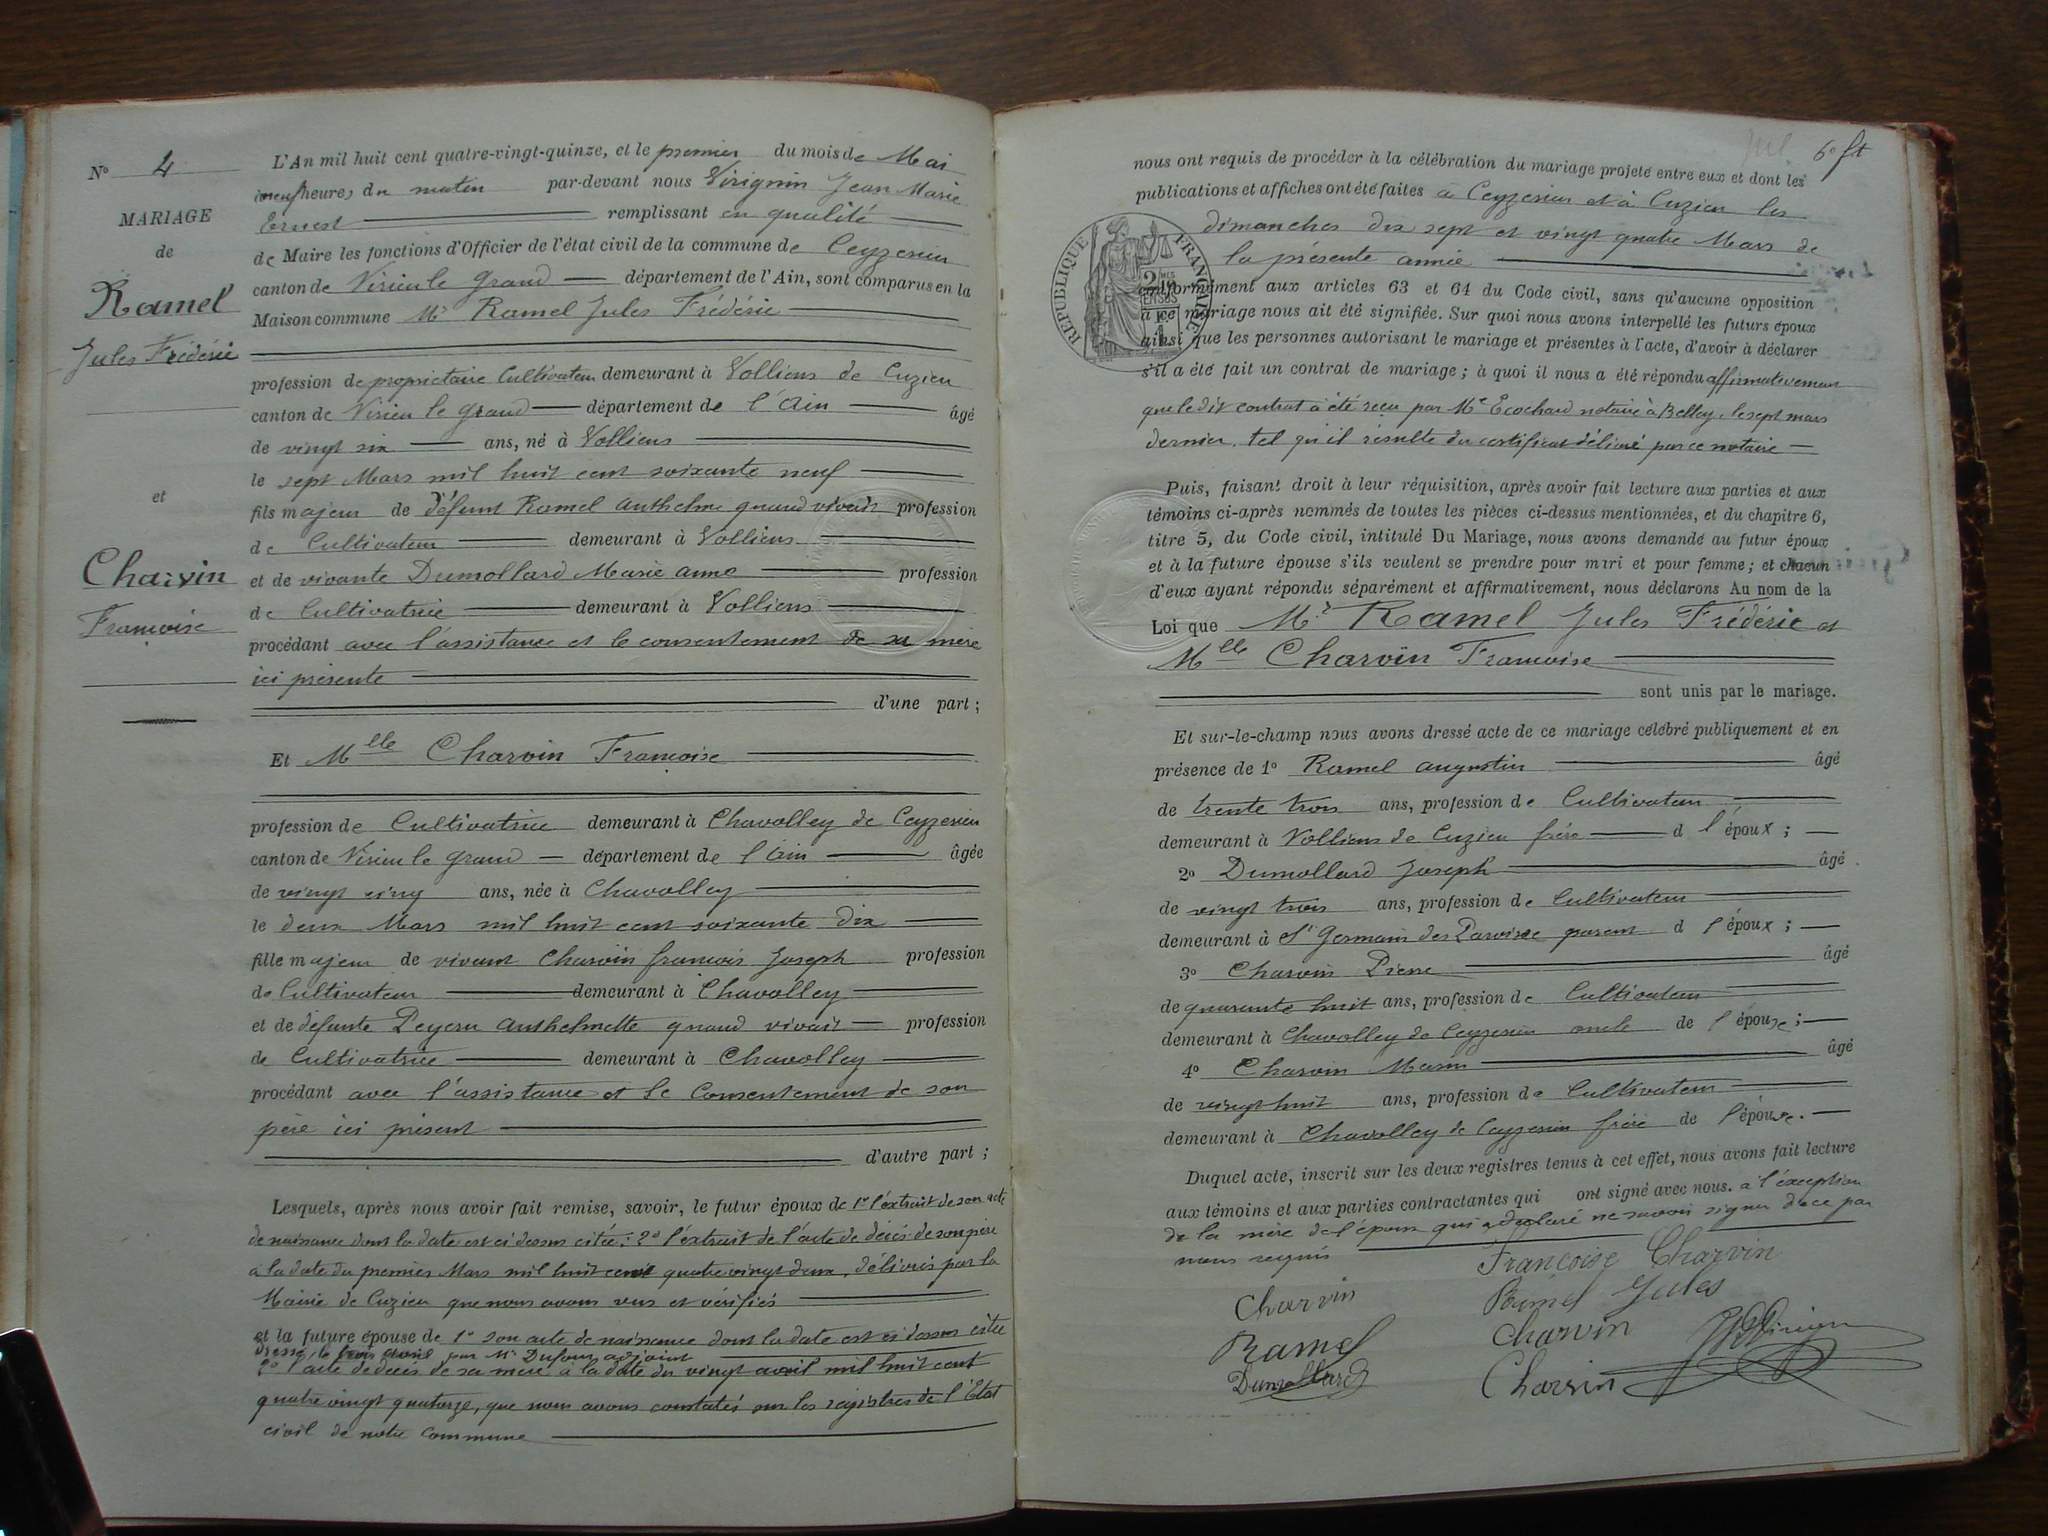 N° 4
MARIAGE
de
Ramel
Jules Frédéric
et
Charvin
Francoise
L'An mil huit cent quatre-vingt-quinze, et le premier du mois de Mai
neuf heures du matin par-devant nous Virignin Jean Marie
Ernest remplissant en qualité
de Maire les fonctions d'Officier de l'état civil de la commune de Ceyzerieu
canton de Virieu le Grand département de l'Ain, sont comparus en la
Maison commune Mr Ramel Jules Frédéric
profession de propriétaire Cultivateur demeurant à Volliens de Cuzieu
canton de Virieu le Grand département de l'Ain âgé
de vingt six ans, né à Volliens
le sept Mars mil huit cent soixante neuf
fils majeur de défunt Ramel Anthelme quand vivait profession
de Cultivateur demeurant à Volliens
et de vivante Dumollard Marie Anne profession
de Cultivatrice demeurant à Volliens
procédant avec l'assistance et le consentement de sa mère
ici présente
d'une part ;
Et Mlle Charvin Francoise
profession de Cultivatrice demeurant à Chavolley de Ceyzerieu
canton de Virieu le Grand département de l'Ain âgée
de vingt cinq ans, née à Chavolley
le deux Mars mil huit cent soixante dix
fille majeur de vivant Charvin francois Joseph profession
de Cultivateur demeurant à Chavolley
et de défunte Anthelmette quand vivait profession
de Cultivatrice demeurant à Chavolley
procédant avec l'assistance et le Consentement de son
père ici présent
d'autre part ;
Lesquels, après nous avoir fait remise, savoir, le futur époux de 1° l'extrait de son acte
de naissance dont la date est ci dessus citée ; 2° l'extrait de l'acte de décès de son père
à la date du premier Mars mil huit cent quatre vingt deux, délivrés par la
Mairie de Cuzieu que nous avons vus et vérifiés
et la future épouse de 1° son acte de naissance dont la date est ci dessus citée
dressé le trois avril par Mr Dufour adjoint
2° l'acte de décès de sa mère à la date du vingt avril mil huit cent
quatre vingt quatorze, que nous avons constatés sur les registres de l'Etat
civil de notre commune
nous ont requis de procéder à la célébration du mariage projeté entre eux et dont les
publications et affiches ont été faites à Ceyzerieu et à Cuzieu les
dimanches dix sept et vingt quatre Mars de
la présente année
RÉPUBLIQUE FRANÇAISE
conformément aux articles 63 et 64 du Code civil, sans qu'aucune opposition
à ce mariage nous ait été signifiée. Sur quoi nous avons interpellé les futurs époux
ainsi que les personnes autorisant le mariage et présentes à l'acte, d'avoir à déclarer
s'il a été fait un contrat de mariage ; à quoi il nous a été répondu affirmativement
que le dit contrat a été reçu par Me Ecochard notaire à Belley, le sept mars
dernier, tel qu'il résulte du certificat délivré par ce notaire
Puis, faisant droit à leur réquisition, après avoir fait lecture aux parties et aux
témoins ci-après nommés de toutes les pièces ci-dessus mentionnées, et du chapitre 6,
titre 5, du Code civil, intitulé Du Mariage, nous avons demandé au futur époux
et à la future épouse s'ils veulent se prendre pour mari et pour femme ; et chacun
d'eux ayant répondu séparément et affirmativement, nous déclarons Au nom de la
Loi que Mr Ramel Jules Frédéric et
Mlle Charvin Francoise
sont unis par le mariage.
Et sur-le-champ nous avons dressé acte de ce mariage célébré publiquement et en
présence de 1° Ramel Augustin âgé
de trente trois ans, profession de Cultivateur
demeurant à Volliens de Cuzieu frère d l'époux ;
2° Dumollard Joseph âgé
de vingt trois ans, profession de Cultivateur
demeurant à St Germain des Paroisse parent d l'époux ;
3° Charvin Pierre âgé
de quarante huit ans, profession de Cultivateur
demeurant à Chavolley de Ceyzerieu oncle de l'épouse ;
4° Charvin Marin âgé
de vingt huit ans, profession de Cultivateur
demeurant à Chavolley de Ceyzerieu frère de l'épouse.
Duquel acte, inscrit sur les deux registres tenus à cet effet, nous avons fait lecture
aux témoins et aux parties contractantes qui ont signé avec nous. à l'exception
de la mère de l'époux qui a déclaré ne savoir signer de ce par
nous requis
Francoise Charvin
Charvin Ramel Jules
Ramel Charvin
Dumollard Charvin